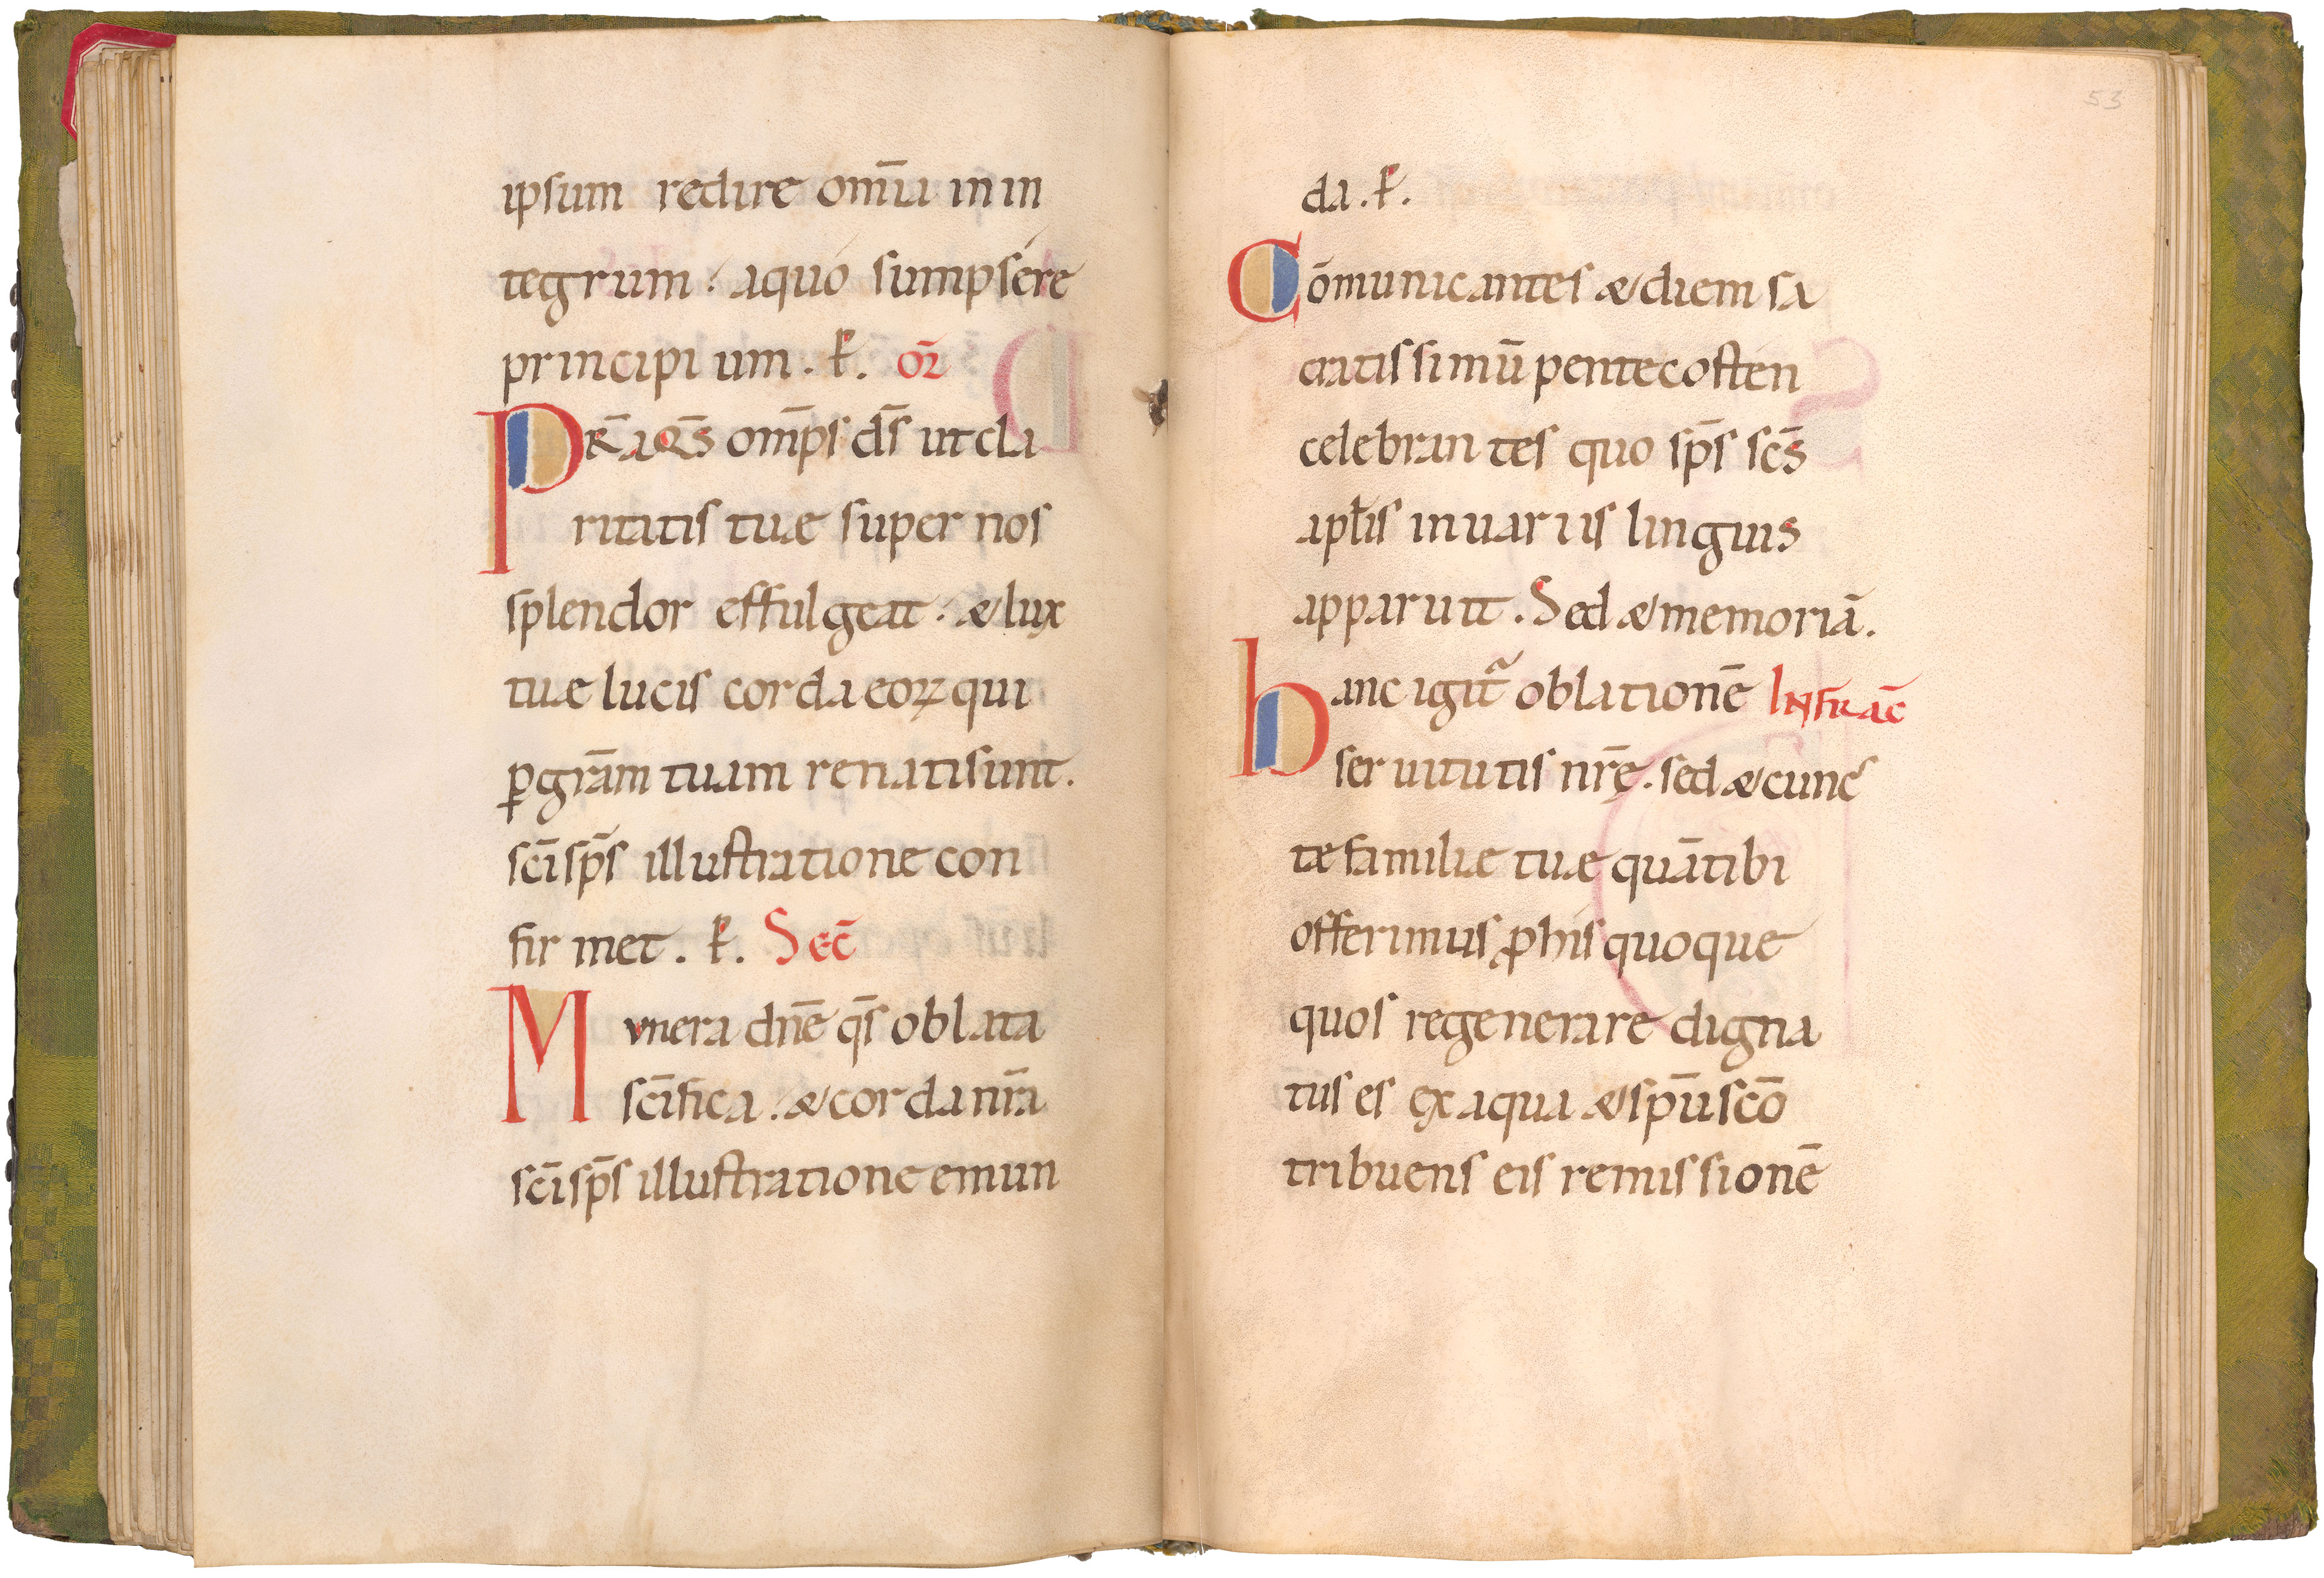 ipsum redire om̄ia in in
tegrum. aquo sumpsére
principium. ꝑ. or̄
PR̄A Q̄S om̄ps d̄s ut cla
ritatis tuæ super nos
splendor effulgeat. & lux
tuæ lucis corda eoꝝ qui
ꝑ gr̄am tuam renati sunt.
sc̄i sp̄s illustratione con
firmet. ꝑ. Sec̄
Munera dn̄e q̄s oblata
sc̄ifica. & corda nr̄a
sc̄i sp̄s illustratione emun
53
da. ꝑ.
Cōmunicantes & diem sa
cratissimū pentecosten
celebrantes quo sp̄s sc̄s
apl̄is inuariis linguis
apparuit. Sed & memoriā.
hanc igit̃ oblationē INFRA AC̄
seruitutis nr̄ę. sed & cunc
tæ familiæ tuæ quā tibi
offerimus ꝓ his quoque
quos regenerare digna
tus es ex aqua & sp̄u sc̄o
tribuens eis remissionē